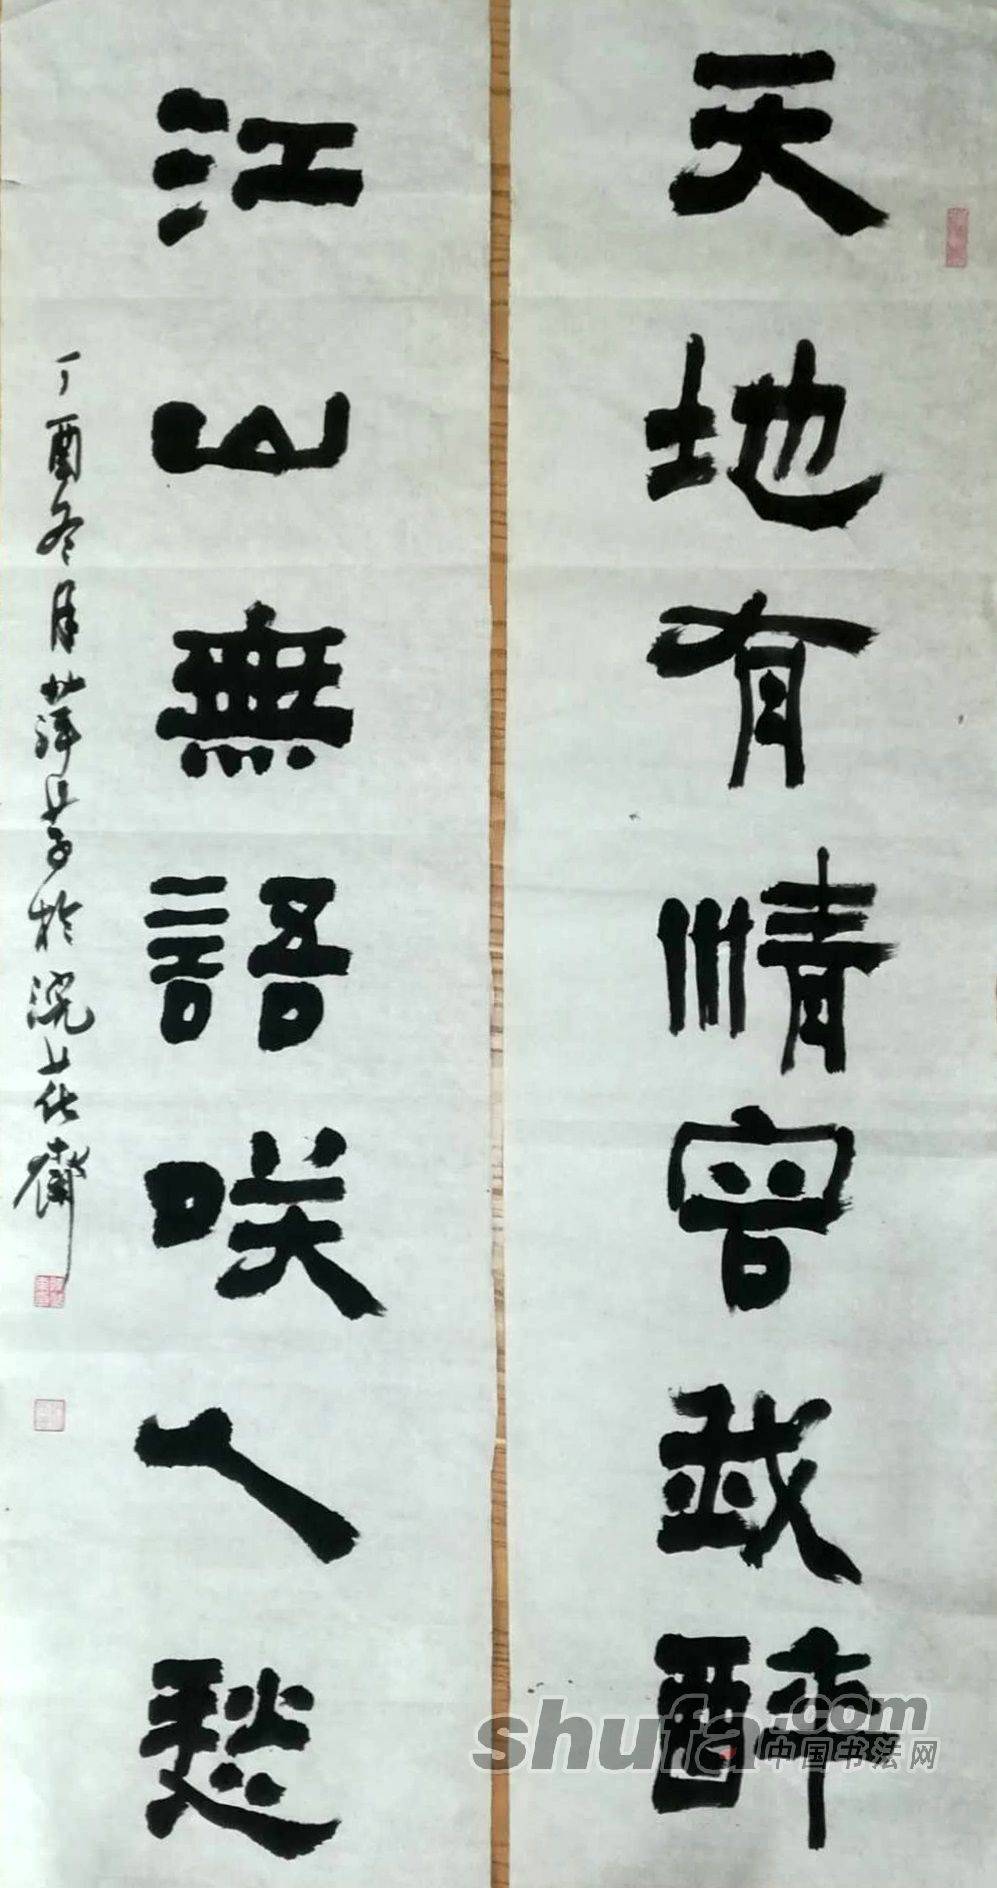 天地有情曾我醉
江山無語咲人愁
丁酉冬月萍子於浣花齋
shufa.com
中国书法网